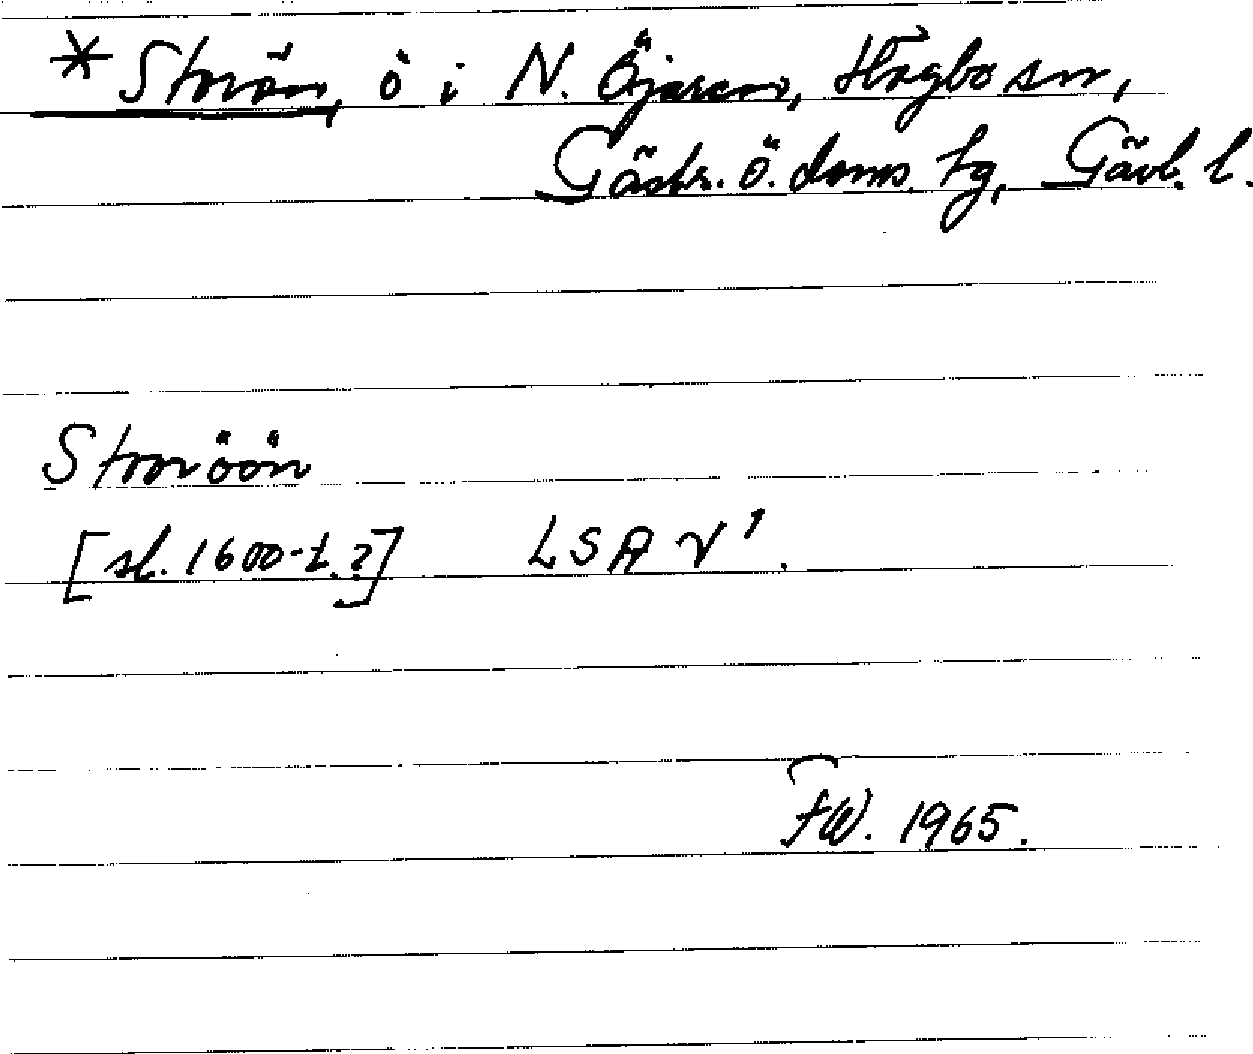 * Storön, ö i N. Öjaren, Högbo sn,
Gästr. ö. doms. tg, Gävl. l.
Storöön
[sl. 1600-t.?] LSA V¹.
FW. 1965.